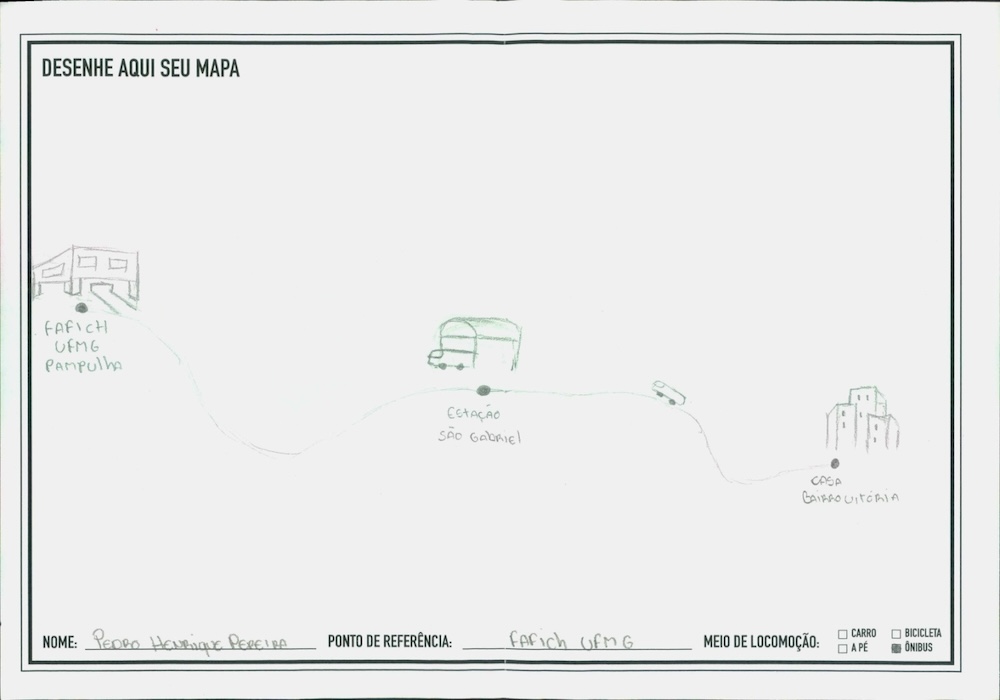 DESENHE AQUI SEU MAPA
FAFICH
UFMG
PAMPULHA
ESTAÇÃO
SÃO GABRIEL
CASA
BAIRRO VITÓRIA
NOME: PEDRO HENRIQUE PEREIRA PONTO DE REFERÊNCIA: FAFICH UFMG MEIO DE LOCOMOÇÃO: CARRO BICICLETA
A PÉ ÔNIBUS